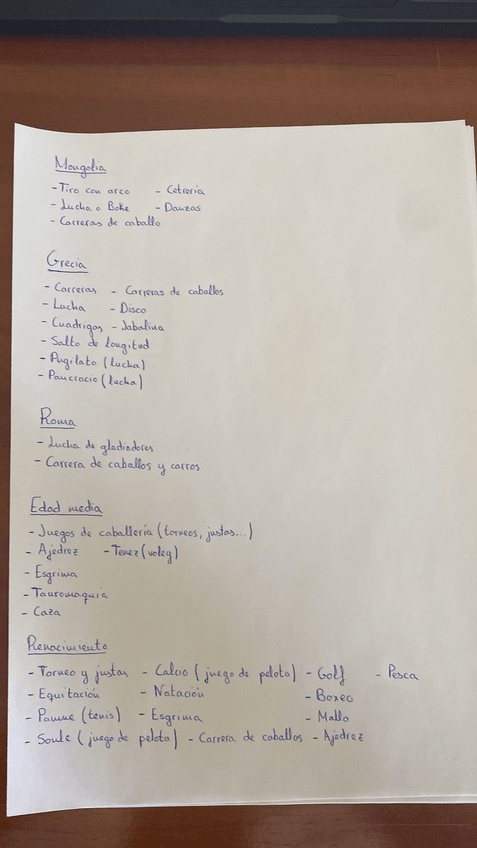 Mongolia
- Tiro con arco - Cetrería
- Lucha o Boke - Danzas
- Carreras de caballo
Grecia
- Carreras - Carreras de caballos
- Lucha - Disco
- Cuadrigas - Jabalina
- Salto de longitud
- Pugilato (lucha)
- Pancracio (lucha)
Roma
- Lucha de gladiadores
- Carrera de caballos y carros
Edad media
- Juegos de caballería (torneos, justas...)
- Ajedrez - Tenez (voleg)
- Esgrima
- Tauromaquia
- Caza
Renacimiento
- Torneo y justas - Calcio (juego de pelota) - Golf - Pesca
- Equitación - Natación - Boxeo
- Paume (tenis) - Esgrima - Mallo
- Soule (juego de pelota) - Carrera de caballos - Ajedrez